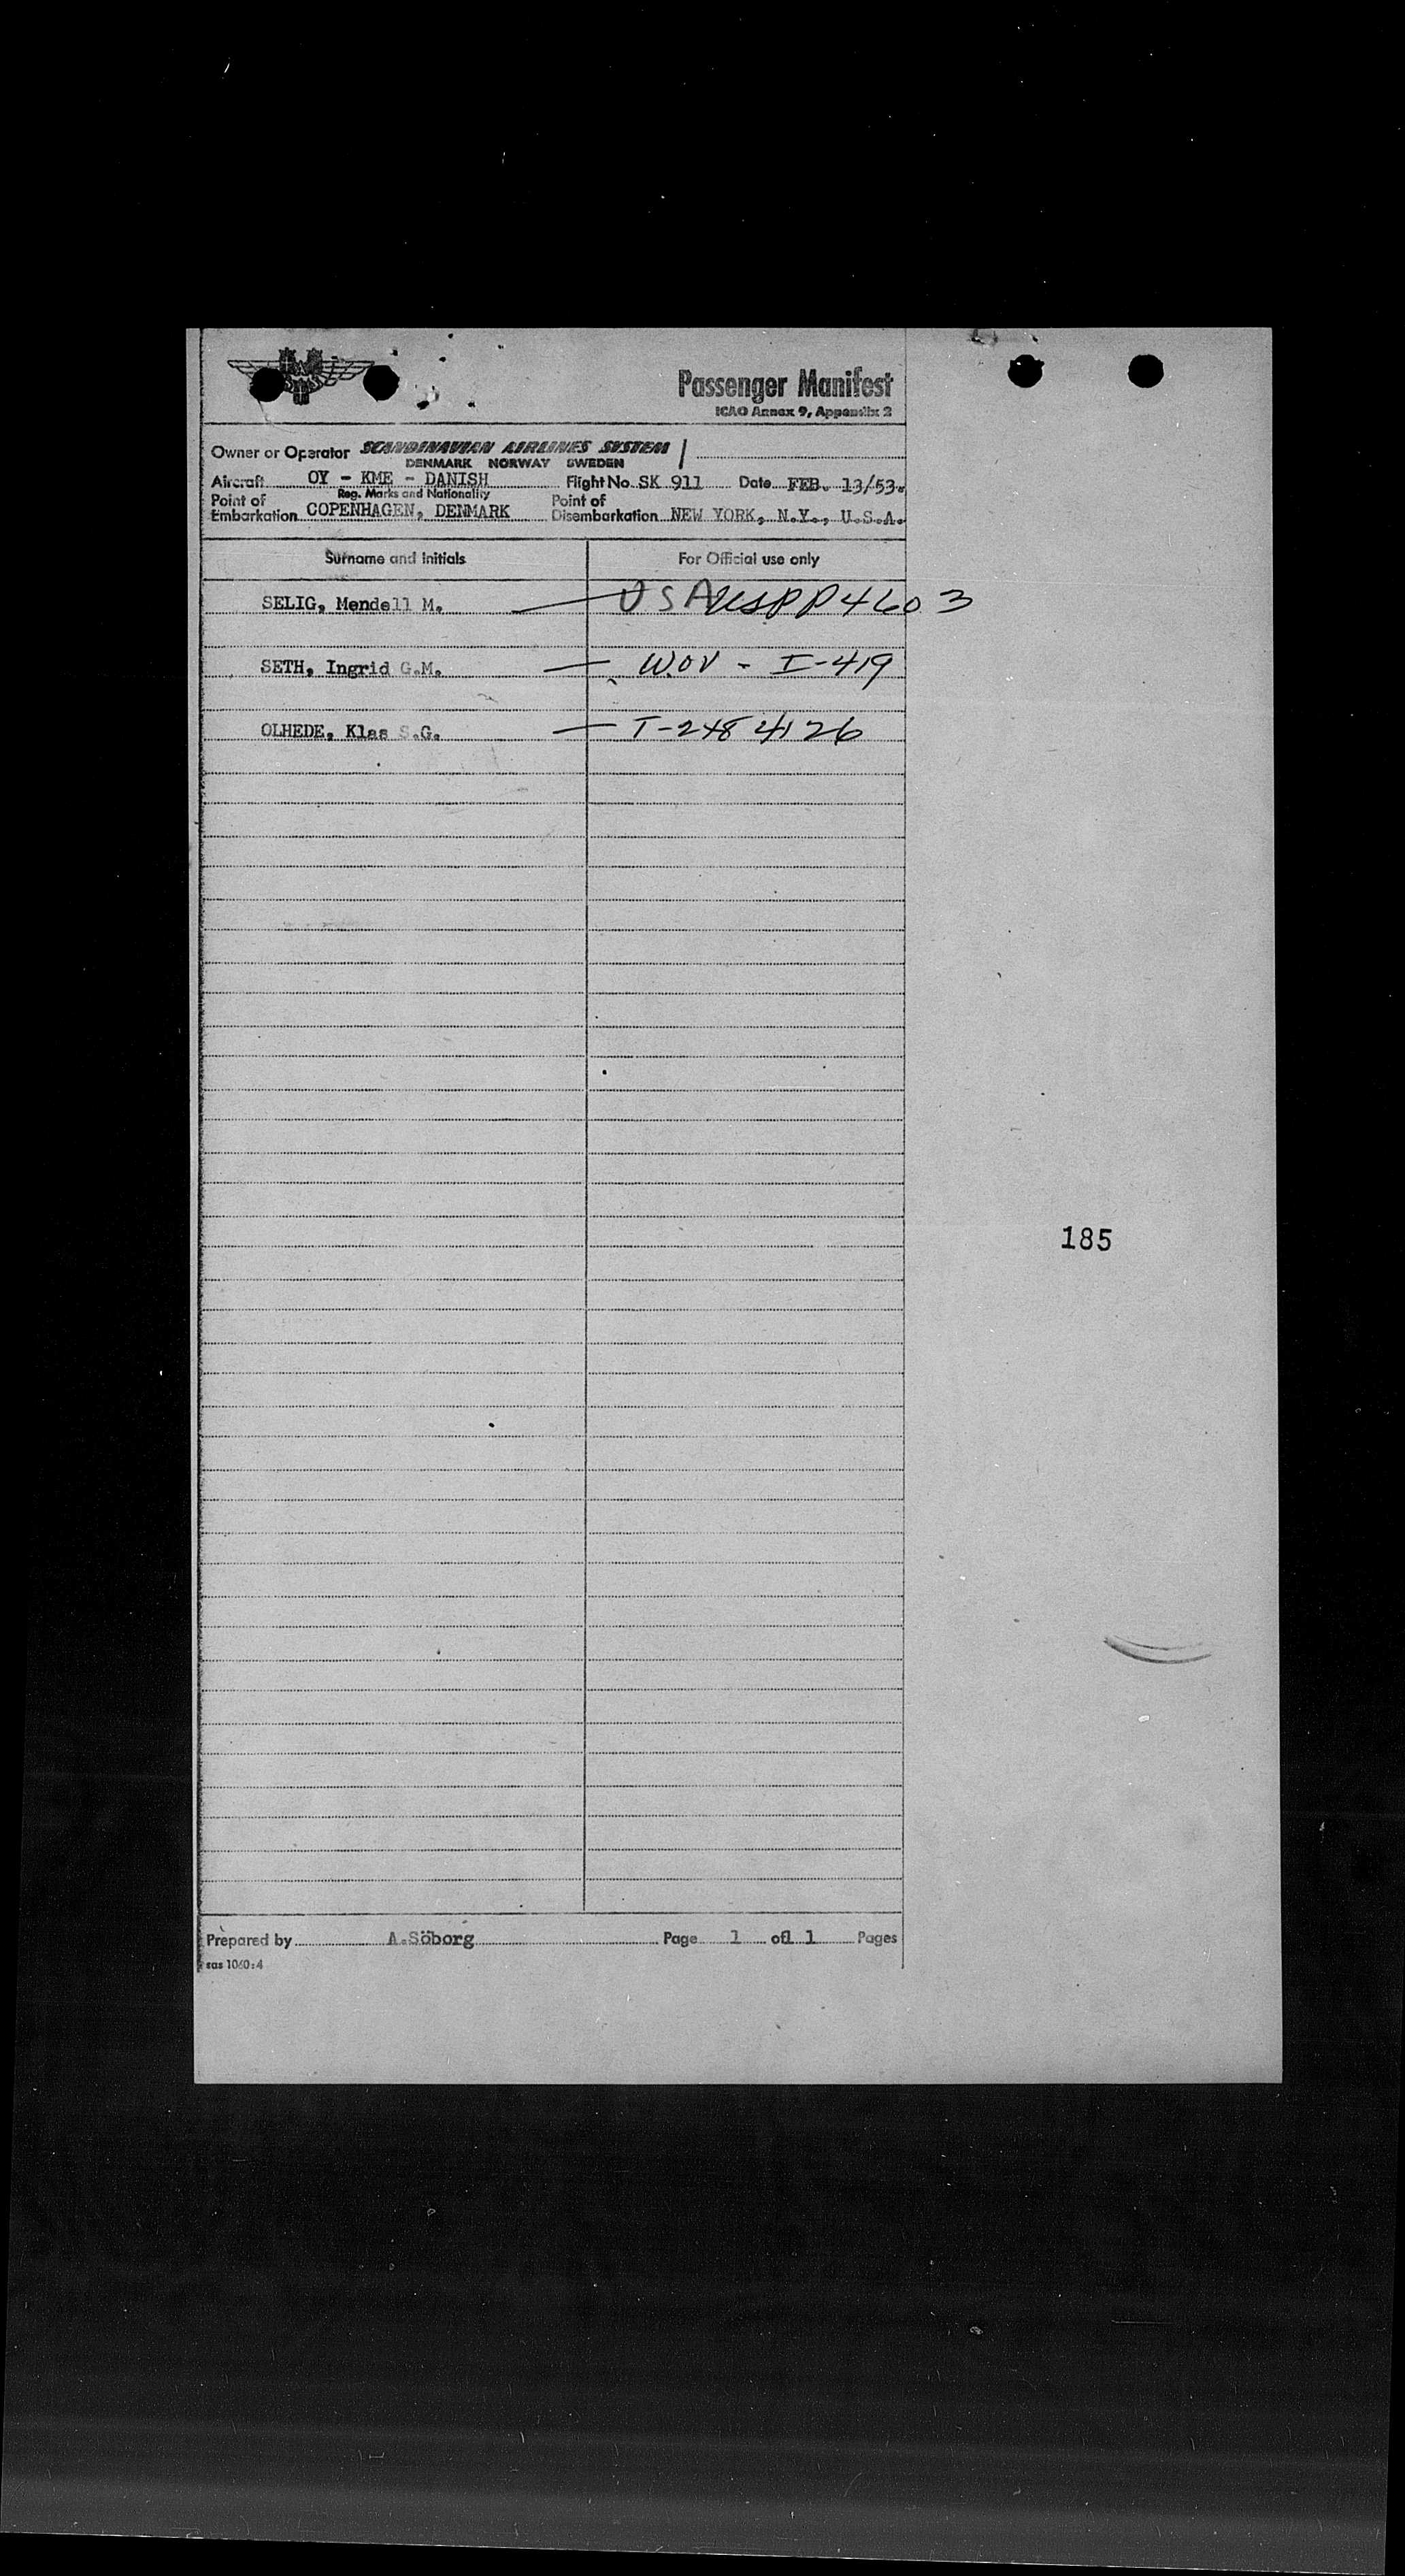 Passenger Manifest
ICAO Annex 9, Appendix 2
Owner or Operator SCANDINAVIAN AIRLINES SYSTEM
DENMARK NORWAY SWEDEN
Aircraft OY - KME - DANISH Flight No. SK 911 Date FEB. 13/53.
Reg. Marks and Nationality
Point of Embarkation COPENHAGEN, DENMARK Point of Disembarkation NEW YORK, N.Y., U.S.A.
Surname and initials For Official use only
SELIG, Mendell M. — USA USPP 4603
SETH, Ingrid G.M. — W.OV - I-419
OLHEDE, Klas S.G. —
185
Prepared by A.Söborg Page 1 of 1 Pages
sas 1060:4